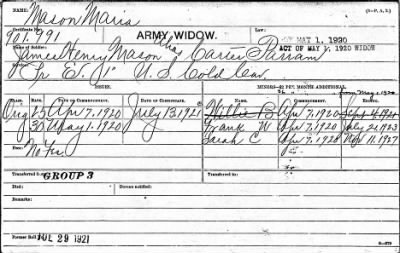 NAME: Mason Maria (3—P. A. R.)
Certificate No.
901.791 ARMY WIDOW. MAY 1, 1920
Name of Soldier: ACT OF MAY 1, 1920 WIDOW
James Henry Mason alias Carter Parram
Co. E. 1" U.S. Cold Cav.
ISSUE. MINORS—$2 PER MONTH ADDITIONAL
from May 1, 1920
CLASS RATE DATE OF COMMENCEMENT. DATE OF CERTIFICATE. NAME. DATE OF COMMENCEMENT.
Orig 25 Apr 7, 1920 July 13 1921 Willie B Apr 7, 1920
30 May 1. 1920 Frank W Apr 7, 1920 July 22 1923
No Fee Sarah C Apr 7, 1920 Nov 11, 1927
Transferred to GROUP 3 Transferred to:
Died: Bureau notified:
Remarks:
Former Roll JUL 29 1921